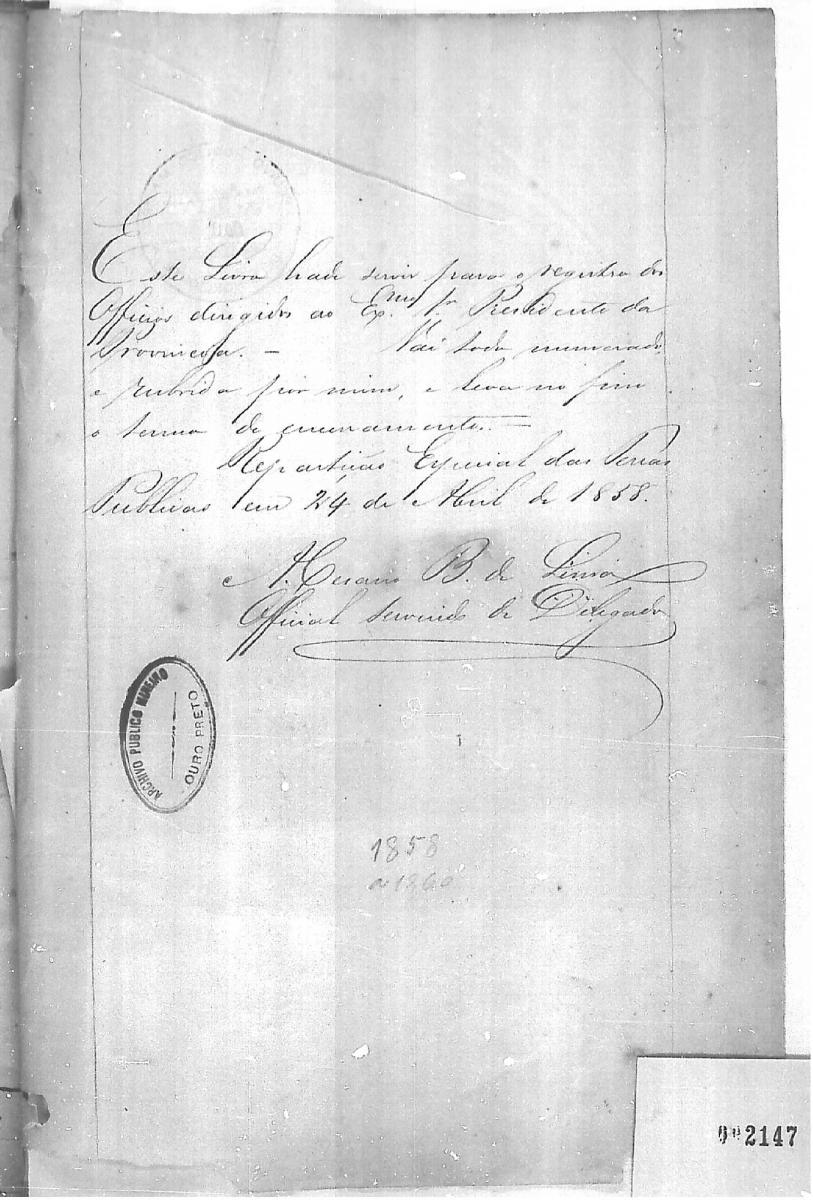 Este Livro hade servir para o registro dos
Officios dirigidos ao Ex.mo Sr Presidente da
Provincia. — Vai todo numerado
e rubrido por mim, e leva no fim
o termo de encerramento. —
Repartição Especial das Terras
Publicas em 24 de Abril de 1858.
B. de Lima
Official servindo de Delegado
ARCHIVO PUBLICO MINEIRO
OURO PRETO
1858
a 1860
2147